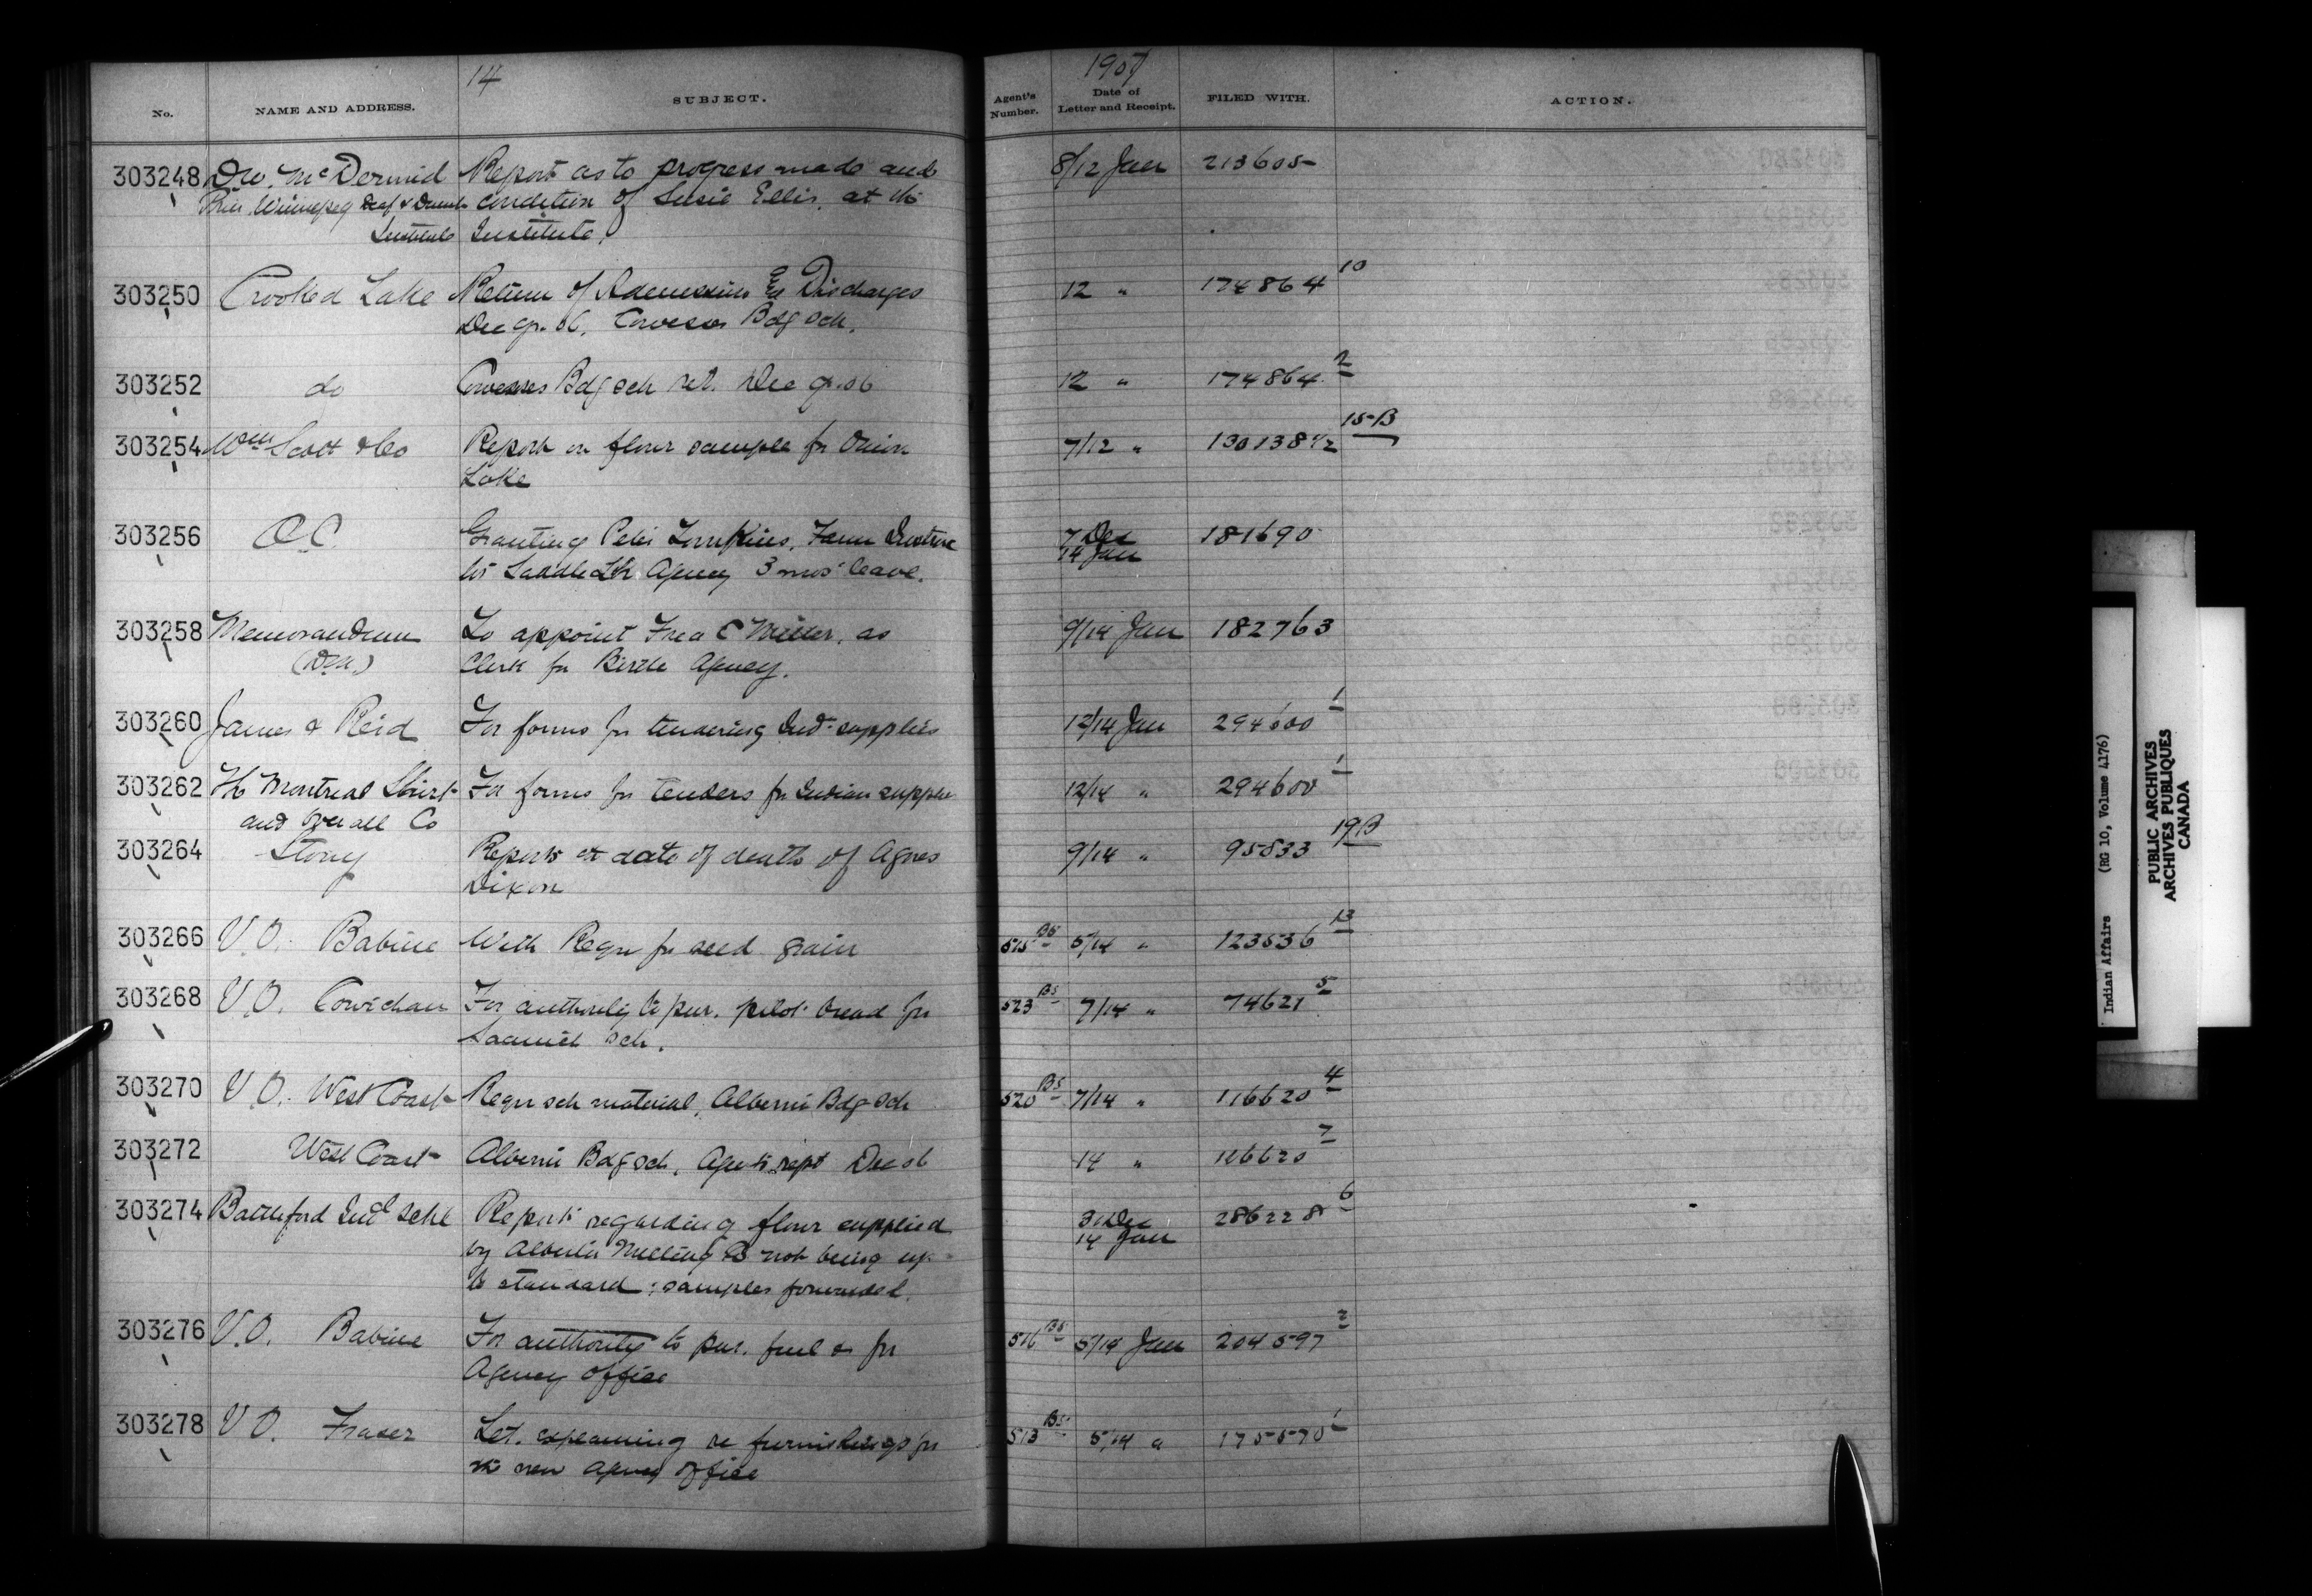 14
1907
No. NAME AND ADDRESS. SUBJECT. Agent's Number. Date of Letter and Receipt. FILED WITH. ACTION.
303248 D.W. McDermid Report as to progress made and 8/12 Jan 213605
Prin Winnipeg Deaf & Dumb condition of Susie Ellis, at the
Institute Institute.
303250 Crooked Lake Return of Admissions & Discharges 12 " 174864 10
Dec qr. 06, Cowesses Bdg Sch.
303252 do Cowesses Bdg sch ret. Dec qr. 06 12 " 174864 2
303254 Wm Scott & Co Report on flour sample for Onion 7/12 " 130138 1/2 15-B
Lake
303256 O.C. Granting Peter Tompkins, Farm Instruc 7 Dec 181690
14 Jan
for Saddle Lk Agency 3 mos' leave.
303258 Memorandum To appoint Fred C Miller, as 9/14 Jan 182763
Clerk for Birtle Agency.
303260 James & Reid For forms for tendering Ind. supplies 12/14 Jan 294600 1
303262 The Montreal Shirt For forms for tenders for Indian supplies 12/14 " 294600 1
and Overall Co
303264 Stony Reports date of death of Agnes 9/14 " 95833 19B
Dixon
303266 V.O. Babine With Requ for seed grain 515 BS 5/14 " 123536 13
303268 V.O. Cowichan For authority to pur. pilot bread for 523 BS 7/14 " 74621 5
Saanich sch.
303270 V.O. West Coast Requ sch material, Alberni Bdg Sch 520 BS 7/14 " 116620 4
303272 West Coast Alberni Bdg sch, Agent's rept Dec 06 14 " 116620 7
303274 Battleford Indl Schl Reports regarding flour supplied 31 Dec 286228 6
14 Jan
by Alberta Milling Co not being up
to standard; samples forwarded.
303276 V.O. Babine For authority to pur. fuel for 516 BS 5/14 Jan 204597 2
Agency office
303278 V.O. Fraser Let. explaining re furnishings for 513 BS 5/14 " 175570 1
the new Agency office
Indian Affairs (RG 10, Volume 4176)
PUBLIC ARCHIVES
ARCHIVES PUBLIQUES
CANADA